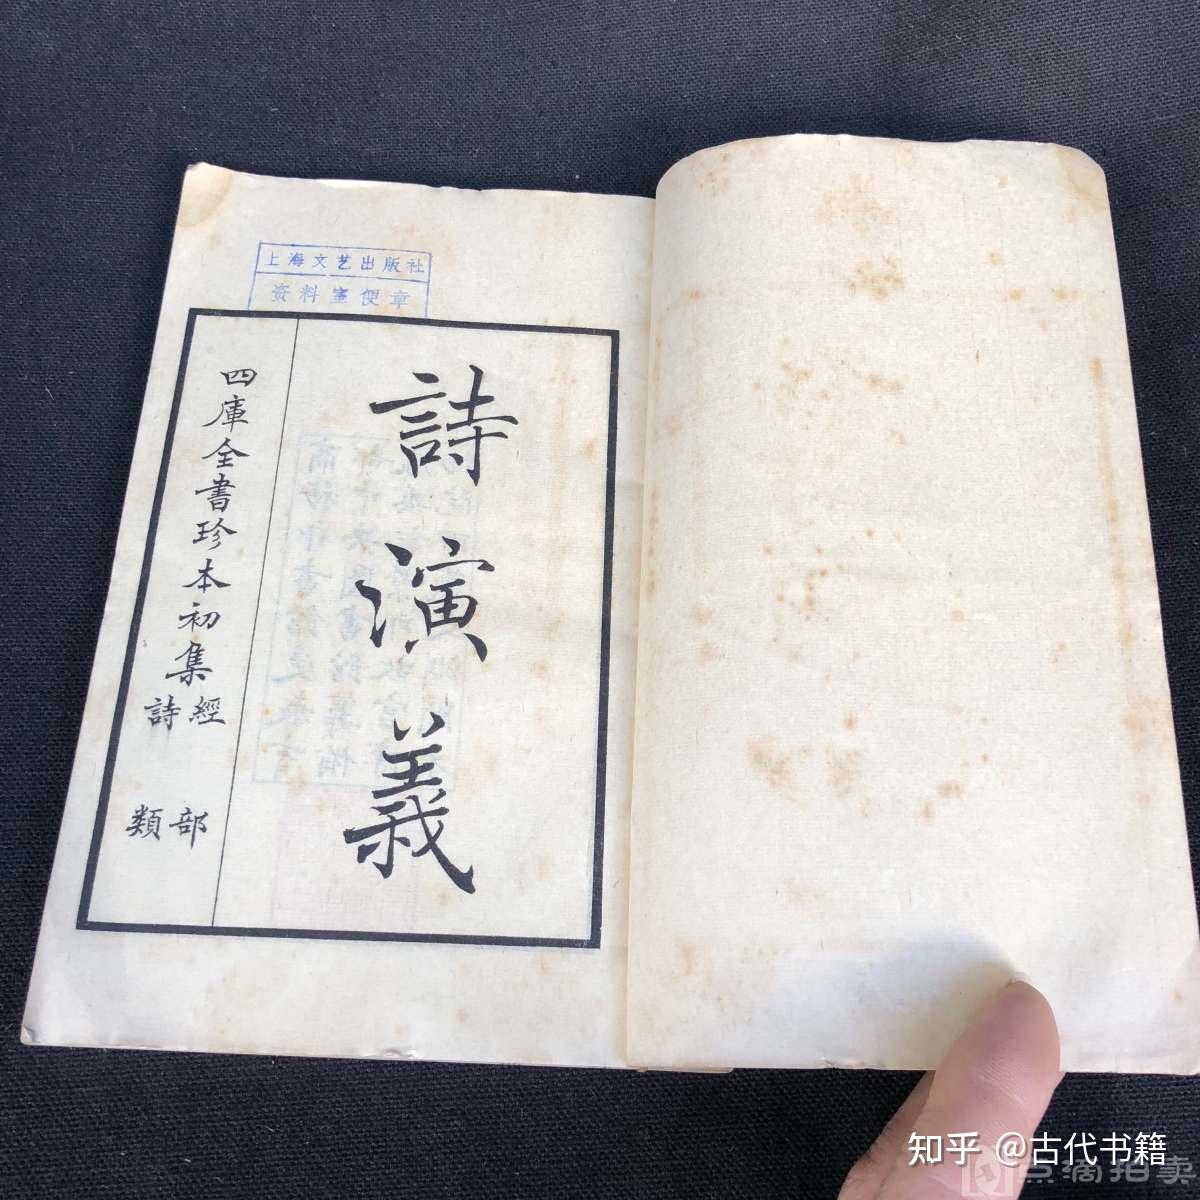 上海文艺出版社
资料室便章
詩演義
四庫全書珍本初集
經部
詩類
知乎 @古代书籍
点滴拍卖